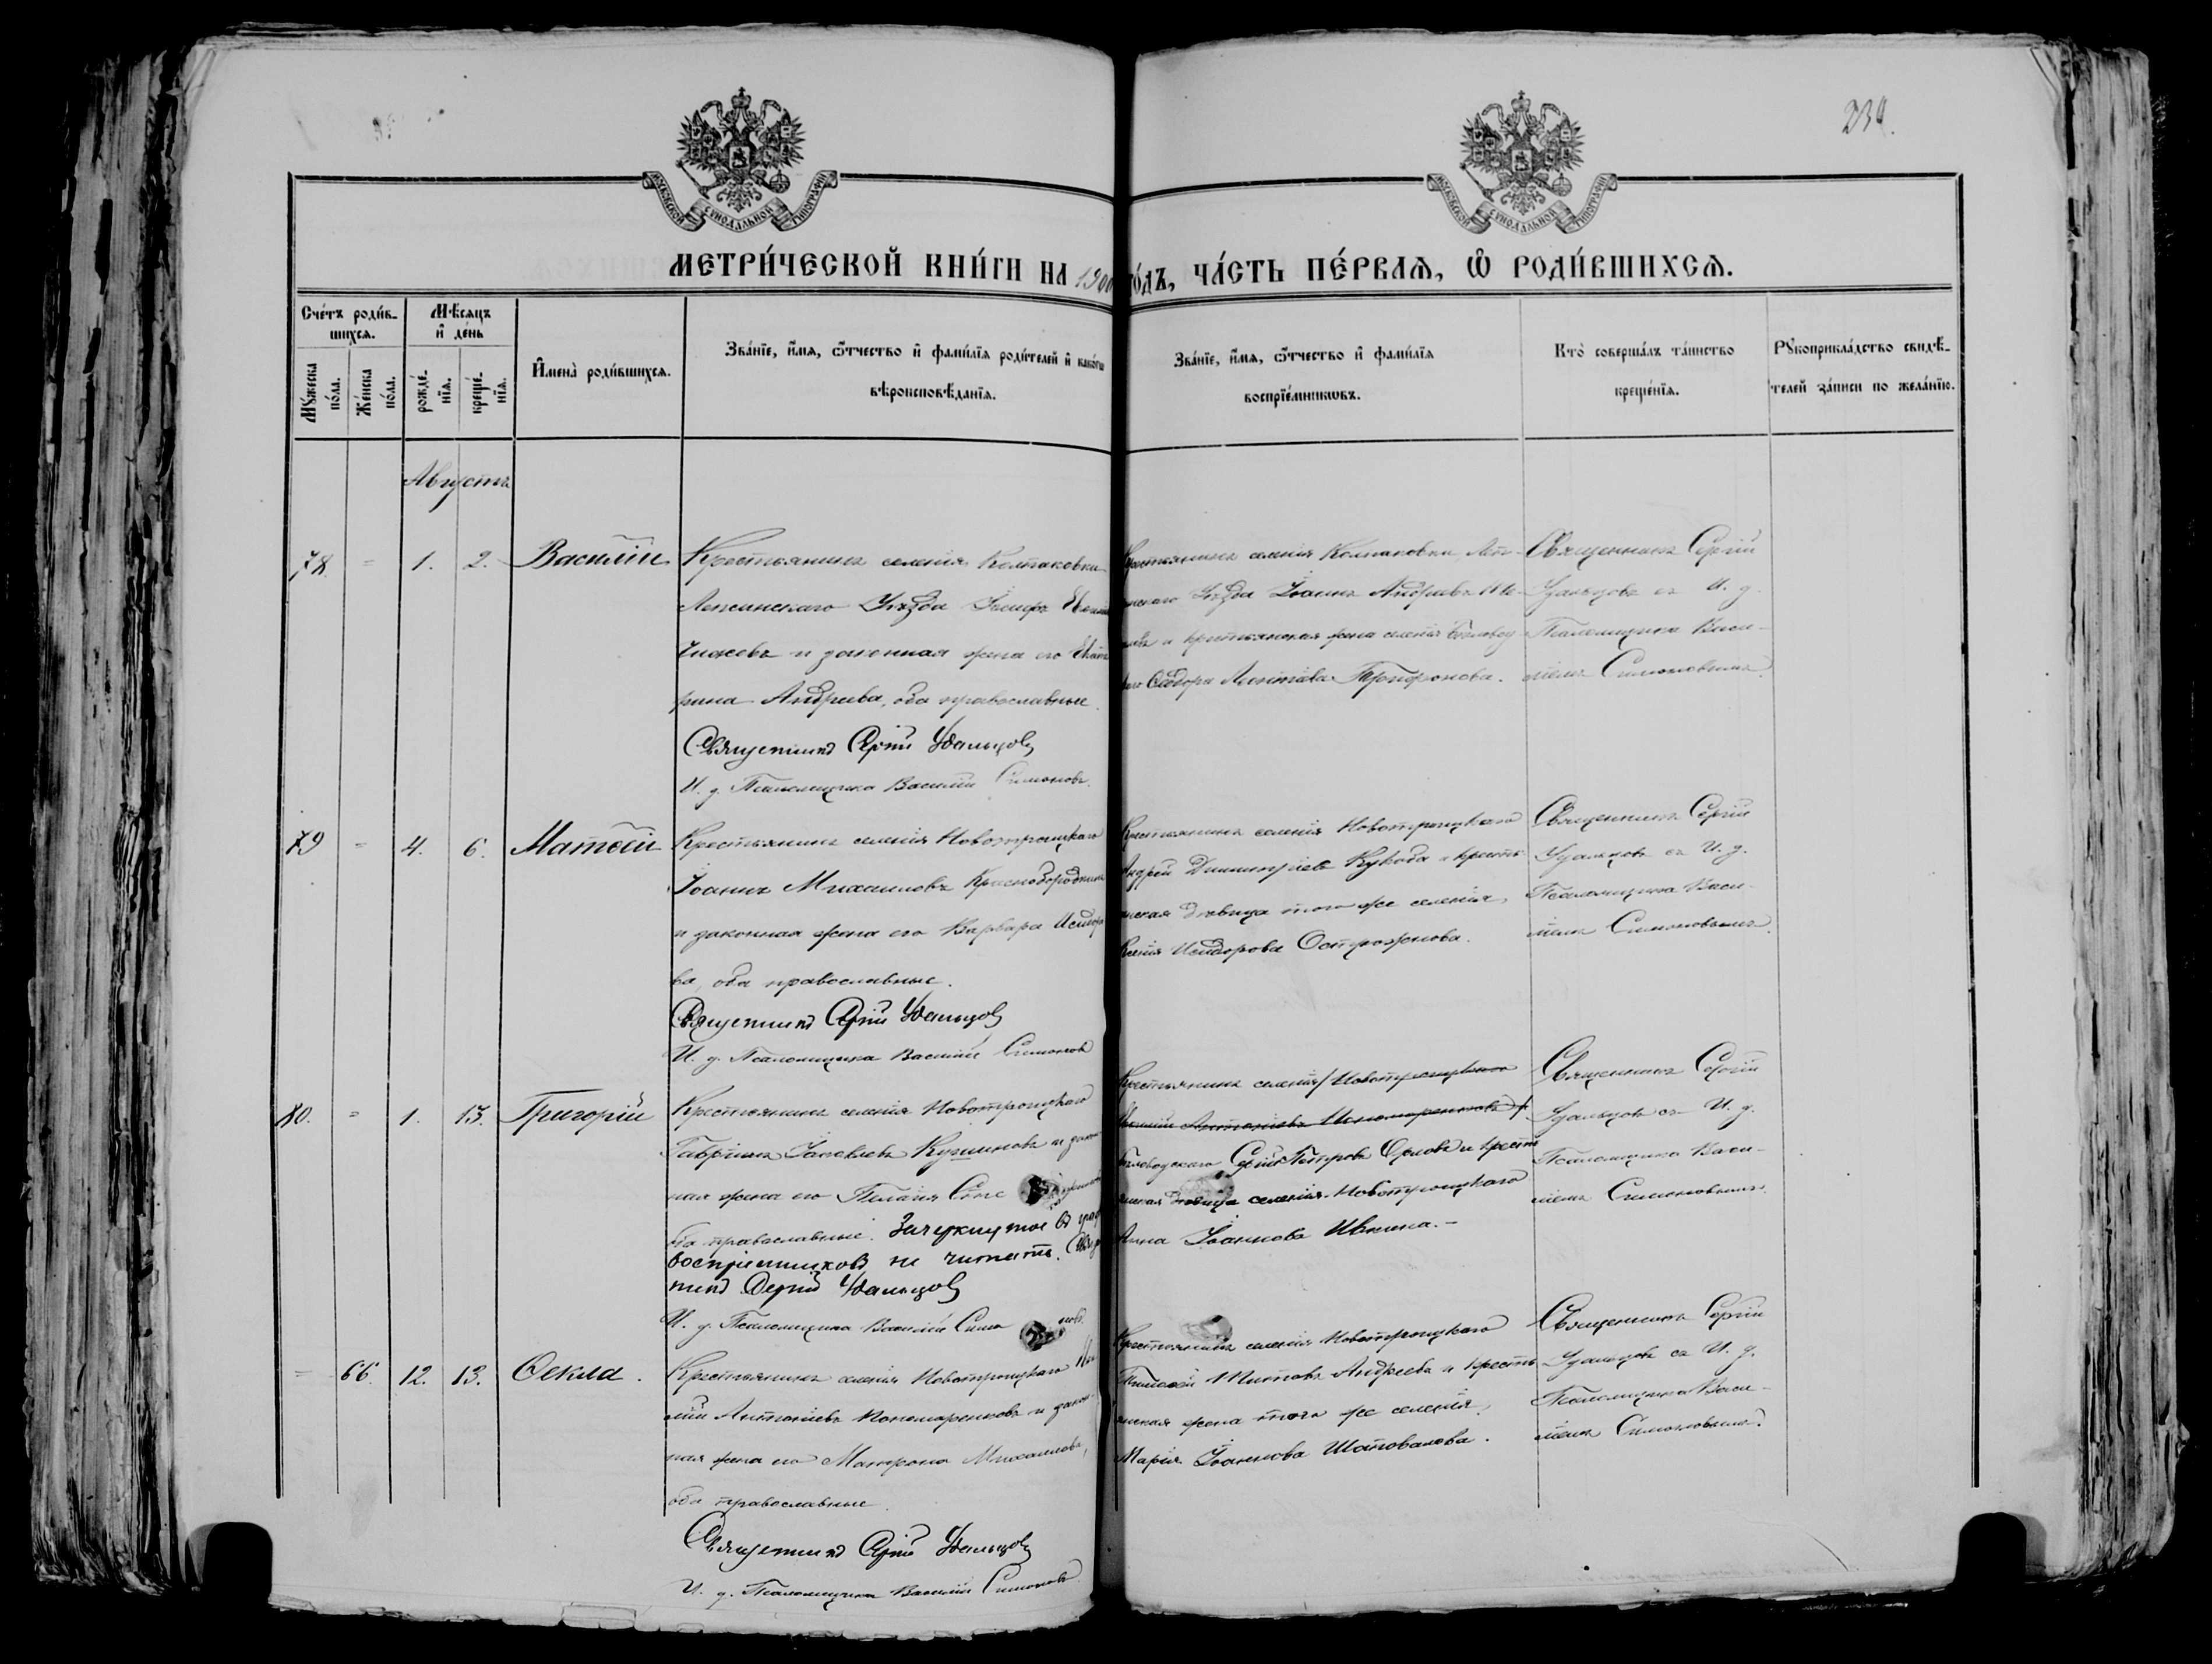 234.
МОСКОВСКОЙ СѴНОДАЛЬНОЙ ТИПОГРАФІИ
МОСКОВСКОЙ СѴНОДАЛЬНОЙ ТИПОГРАФІИ
МЕТРИ́ЧЕСКОЙ КНИ́ГИ НА 1900 го́дъ, ЧА́СТЬ ПЕ́РВАѦ, Ѡ҆ РОДИ́ВШИХСѦ.
Сче́тъ роди́в-
шихсѧ.
Мѣ́сѧцъ
и҆ де́нь
Мꙋ́жеска
по́ла.
Же́нска
по́ла.
рожде́-
нїѧ.
креще́-
нїѧ.
И҆мена̀ роди́вшихсѧ.
Зва́нїе, и҆́мѧ, ѻ҆́тчество и҆ фами́лїѧ роди́телей и҆ како́гѡ
вѣроисповѣ́данїѧ.
Зва́нїе, и҆́мѧ, ѻ҆́тчество и҆ фами́лїѧ
воспрїе́мникѡвъ.
Кто̀ соверша́лъ та́инство
креще́нїѧ.
Рꙋкоприкла́дство свидѣ́-
телей за́писи по жела́нїю.
Августъ
78. = 1. 2. Василій
Крестьянинъ селенія Колпаковки
Лепсинскаго Уѣзда Іосифъ
и законная жена его Екате
рина Андреева, оба православные.
Священникъ Сергій Удальцовъ
И. д. Псаломщика Василій Симоновъ.
Крестьянинъ селенія Колпаковки Леп-
синскаго Уѣзда Іоаннъ
и крестьянская жена селенія
Трифонова.
Священникъ Сергій
Удальцовъ съ И. д.
Псаломщика Васи-
ліемъ Симоновымъ.
79 = 4. 6. Матѳей
Крестьянинъ селенія Новотроицкаго
Іоаннъ Михаиловъ Краснобородкинъ
и законная жена его Варвара Исидоро
ва, оба православные.
Священникъ Сергій Удальцовъ
И. д. Псаломщика Василій Симоновъ
Крестьянинъ селенія Новотроицкаго
Андрей Димитріевъ Кукоба и кресть
янская дѣвица того же селенія,
Ксенія Исидорова Остроженова.
Священникъ Сергій
Удальцовъ съ И. д.
Псаломщика Васи-
ліемъ Симоновымъ.
80. = 1. 13. Григорій
Крестьянинъ селенія Новотроицкаго
Гавріилъ Іаковлевъ и закон
ная жена его Пелагія
оба православные. Зачеркнутое въ графѣ
воспріемниковъ не читать. Священ
никъ Сергій Удальцовъ
И. д. Псаломщика Василій Симоновъ.
Крестьянинъ селенія / Новотроицкаго
Антоніевъ Пономаренковъ /
Сергій Петровъ Орловъ и крестья
янская дѣвица селенія Новотроицкаго
Анна Іоаннова Ивкина. –
Священникъ Сергій
Удальцовъ съ И. д.
Псаломщика Васи-
ліемъ Симоновымъ.
= 66. 12. 13. Ѳекла.
Крестьянинъ селенія Новотроицкаго
Антоніевъ Пономаренковъ и закон-
ная жена его Матрона Михаилова,
оба православные.
Священникъ Сергій Удальцовъ
И. д. Псаломщика Василій Симоновъ
Крестьянинъ селенія Новотроицкаго
Титовъ Андреевъ и кресть
янская жена того же селенія,
Марія Іоаннова Шаповалова.
Священникъ Сергій
Удальцовъ съ И. д.
Псаломщика Васи-
ліемъ Симоновымъ.